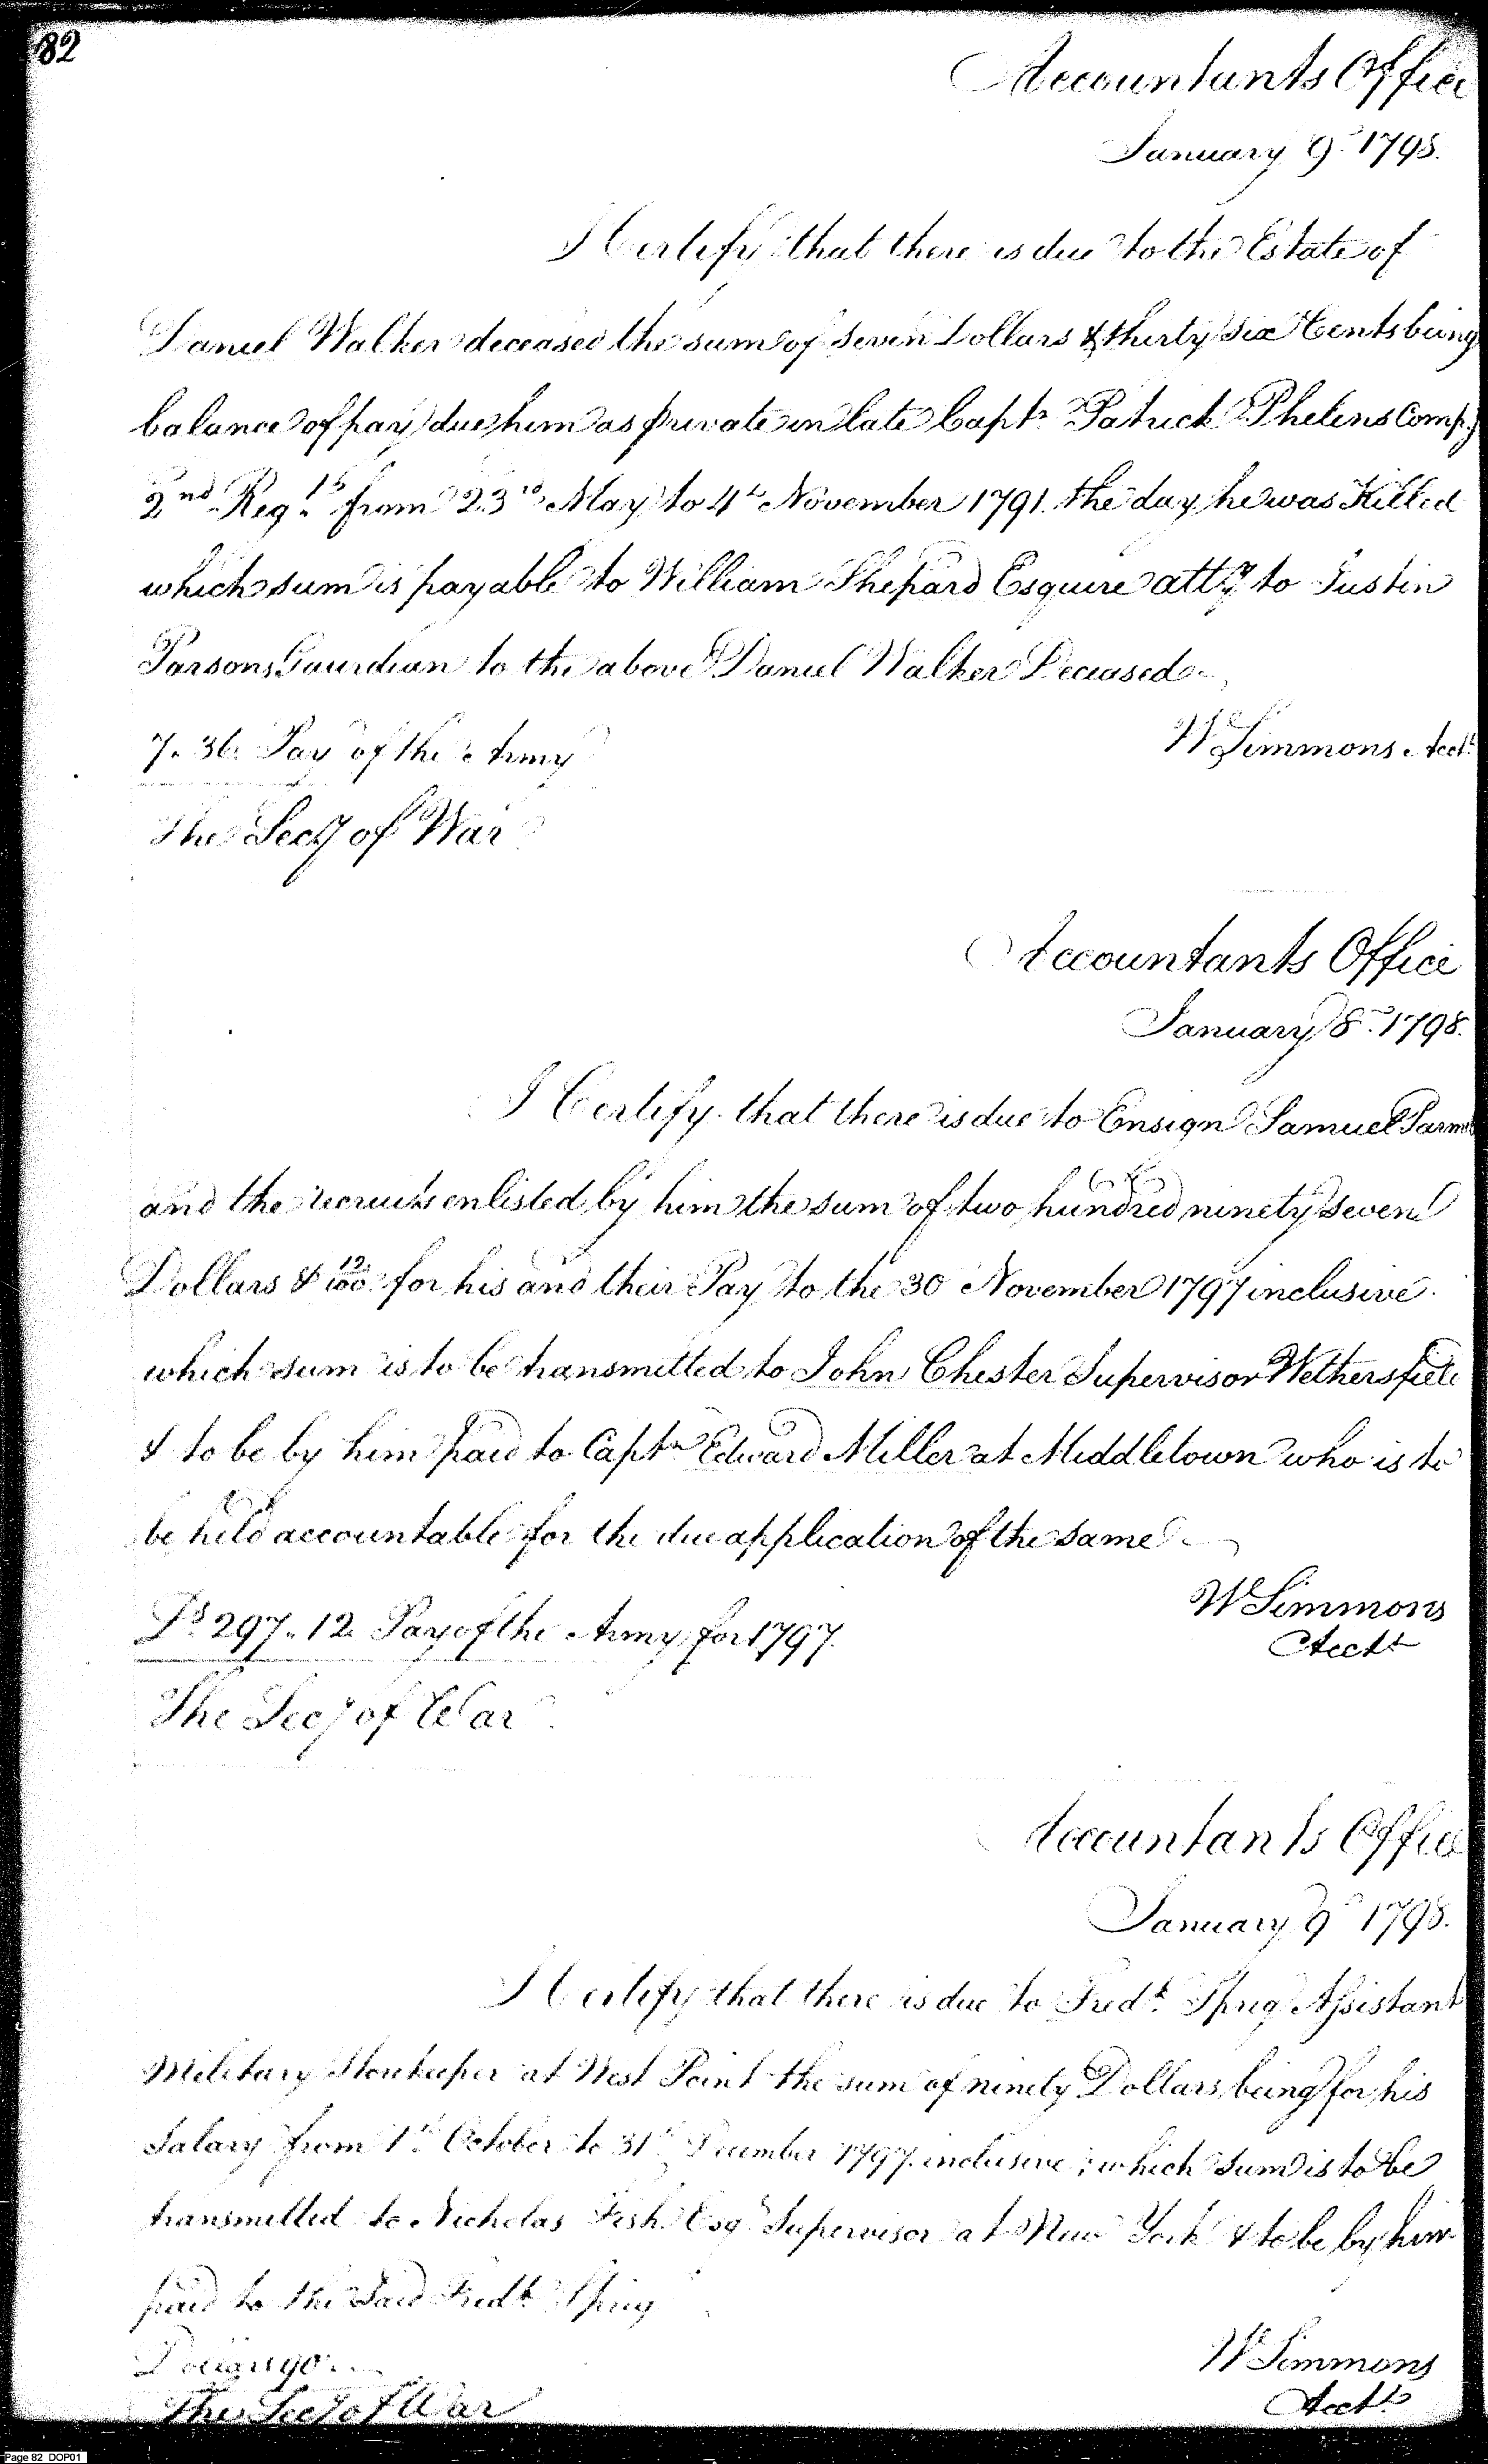 82
Accountants Office
January 9th 1798.
I Certify that there is due to the Estate of
Daniel Walker deceased the sum of seven Dollars & thirty six Cents being
balance of pay due him as private in late Capt. Patrick Phelens Compy
2nd Regt. from 23rd May to 4th November 1791. the day he was Killed
which sum is payable to William Shepard Esquire atty to Justin
Parsons Gaurdian to the above Daniel Walker Deceased
7.36 Pay of the Army
W Simmons Acct.
The Secy of War
Accountants Office
January 8th 1798.
I Certify that there is due to Ensign Samuel
and the recruits enlisted by him the sum of two hundred ninety seven
Dollars & 12/100 for his and their Pay to the 30 November 1797 inclusive.
which sum is to be transmitted to John Chester Supervisor Wethersfield
& to be by him paid to Captn Edward Miller at Middletown who is to
be held accountable for the due application of the same
Ds 297.12 Pay of the Army for 1797.
W Simmons
Acct
The Secy of War
Accountants Office
January 9th 1798.
I Certify that there is due to Fredk. Assistant
Military Storekeeper at West Point the sum of ninety Dollars being for his
Salary from 1st October to 31st December 1797. inclusive; which sum is to be
transmitted to Nicholas Fish Esqr Supervisor at New York & to be by him
paid to the said Fredk
Dollars 90
W Simmons
Acct
The Secy of War
Page 82 DOP01